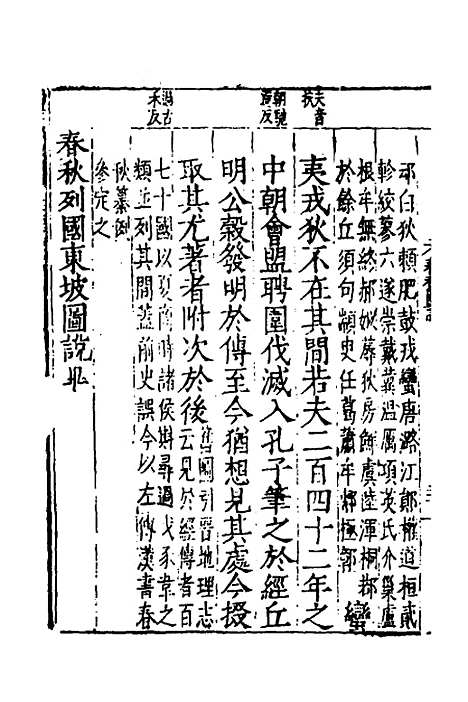 夫音扶
朝馳遥反
過古禾反
白狄賴肥鼓戎蠻唐潞江鄖權道桓貳
軫絞蓼六遂崇戴冀温厲項英氏介巢廬
根牟無終郝姒蓐狄房鮮虞陸渾桐鄀
於餘丘須句顓臾任葛蕭牟極鄣
蠻
夷戎狄不在其間若夫二百四十二年之
中朝會盟聘圍伐滅入孔子筆之於經丘
明公穀發明於傳至今猶想見其處今掇
取其尤著者附次於後
舊圖引晉地理志
云見於經傳者百
七十國以夏商時諸侯斟尋過戈豕韋之
類並列其間蓋前史誤今以左傳漢書春
秋纂例
參定之
春秋列國東坡圖說